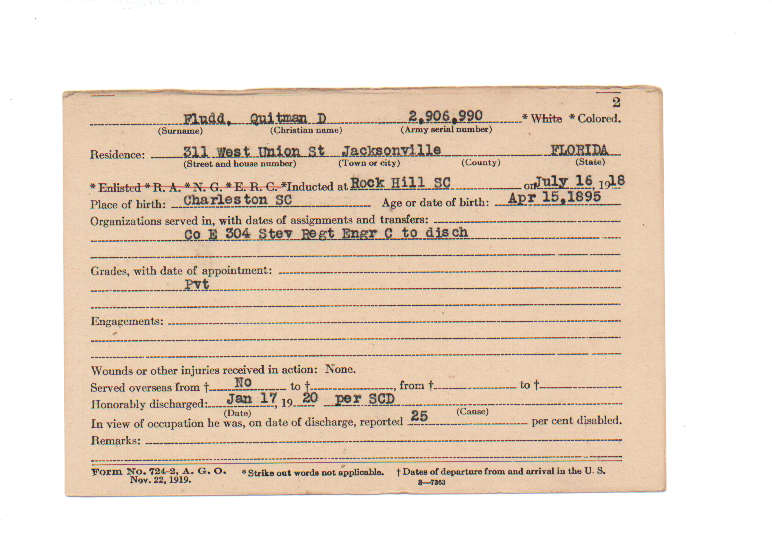 2
Fludd, Quitman D 2,906,990 * White * Colored.
(Surname) (Christian name) (Army serial number)
Residence: 311 West Union St Jacksonville FLORIDA
(Street and house number) (Town or city) (County) (State)
* Enlisted * R. A. * N. G. * E. R. C. *Inducted at Rock Hill SC on July 16, 1918
Place of birth: Charleston SC Age or date of birth: Apr 15,1895
Organizations served in, with dates of assignments and transfers:
Co E 304 Stev Regt Engr C to disch
Grades, with date of appointment:
Pvt
Engagements:
Wounds or other injuries received in action: None.
Served overseas from † No to †, from † to †
Honorably discharged: Jan 17, 1920 per SCD
(Date) (Cause)
In view of occupation he was, on date of discharge, reported 25 per cent disabled.
Remarks:
Form No. 724-2, A. G. O. * Strike out words not applicable. † Dates of departure from and arrival in the U. S.
Nov. 22, 1919. 3—7363